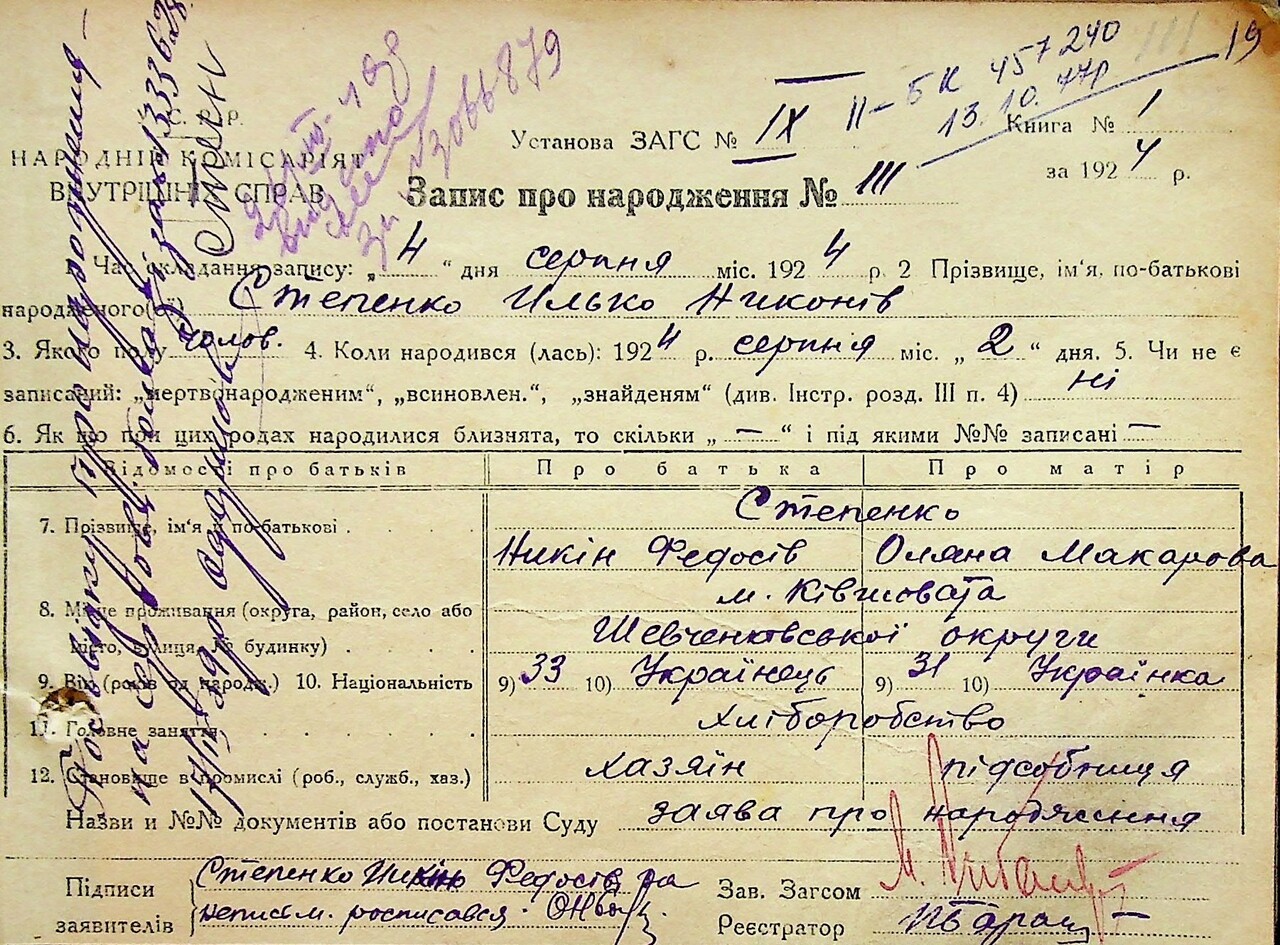 II – БК 457240 19
13.10.77р
У.С.Р.Р.
НАРОДНІЙ КОМІСАРІЯТ
ВНУТРІШНІХ СПРАВ
Установа ЗАГС № IX Книга № 1
за 1924 р.
Запис про народження № III
№ 3066879
1. Час складання запису: „4“ дня серпня міс. 1924 р. 2 Прізвище, ім'я, по-батькові
народженого( ) Степенко Илько Никонів
3. Якого полу чолов. 4. Коли народився (лась): 1924 р. серпня міс. „2“ дня. 5. Чи не є
записаний: „мертвонародженим“, „всиновлен.“, „знайденям“ (див. Інстр. розд. III п. 4) ні
6. Як що при цих родах народилися близнята, то скільки „—“ і під якими №№ записані —
Відомості про батьків Про батька Про матір
7. Прізвище, ім'я и по-батькові Степенко
Никін Федосів Оляна Макарова
8. Місце проживання (округа, район, село або м. Ківшовата
місто, вулиця, № будинку) Шевченківської округи
9. Вік (років од народж.) 10. Національність 9) 33 10) Українець 9) 31 10) Українка
11. Головне заняття хліборобство
12. Становище в промислі (роб., служб., хаз.) хазяїн підсобниця
Назви и №№ документів або постанови Суду заява про народження
Підписи заявителів Степенко Федосів за
неписьм. росписався.
Зав. Загсом
Реєстратор